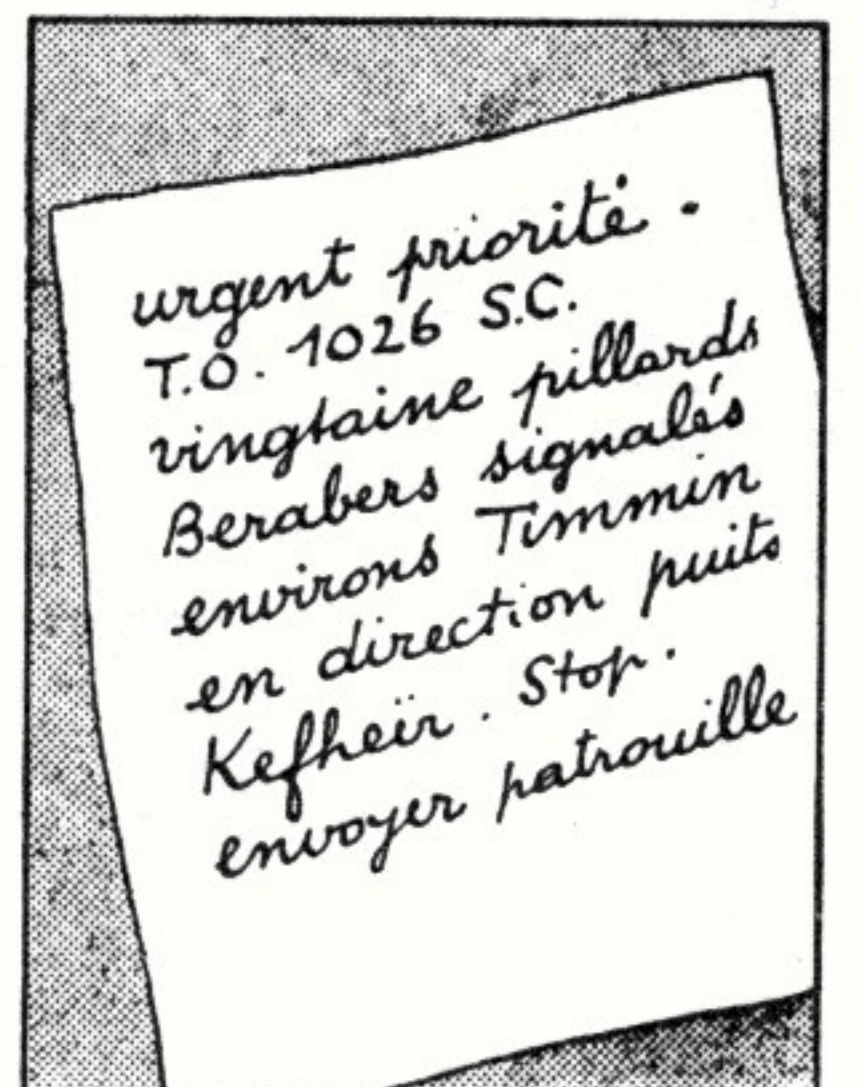 urgent priorité .
T.O. 1026 S.C.
vingtaine pillards
Berabers signalés
environs Timmin
en direction puits
Kefheïr . Stop .
envoyer patrouille